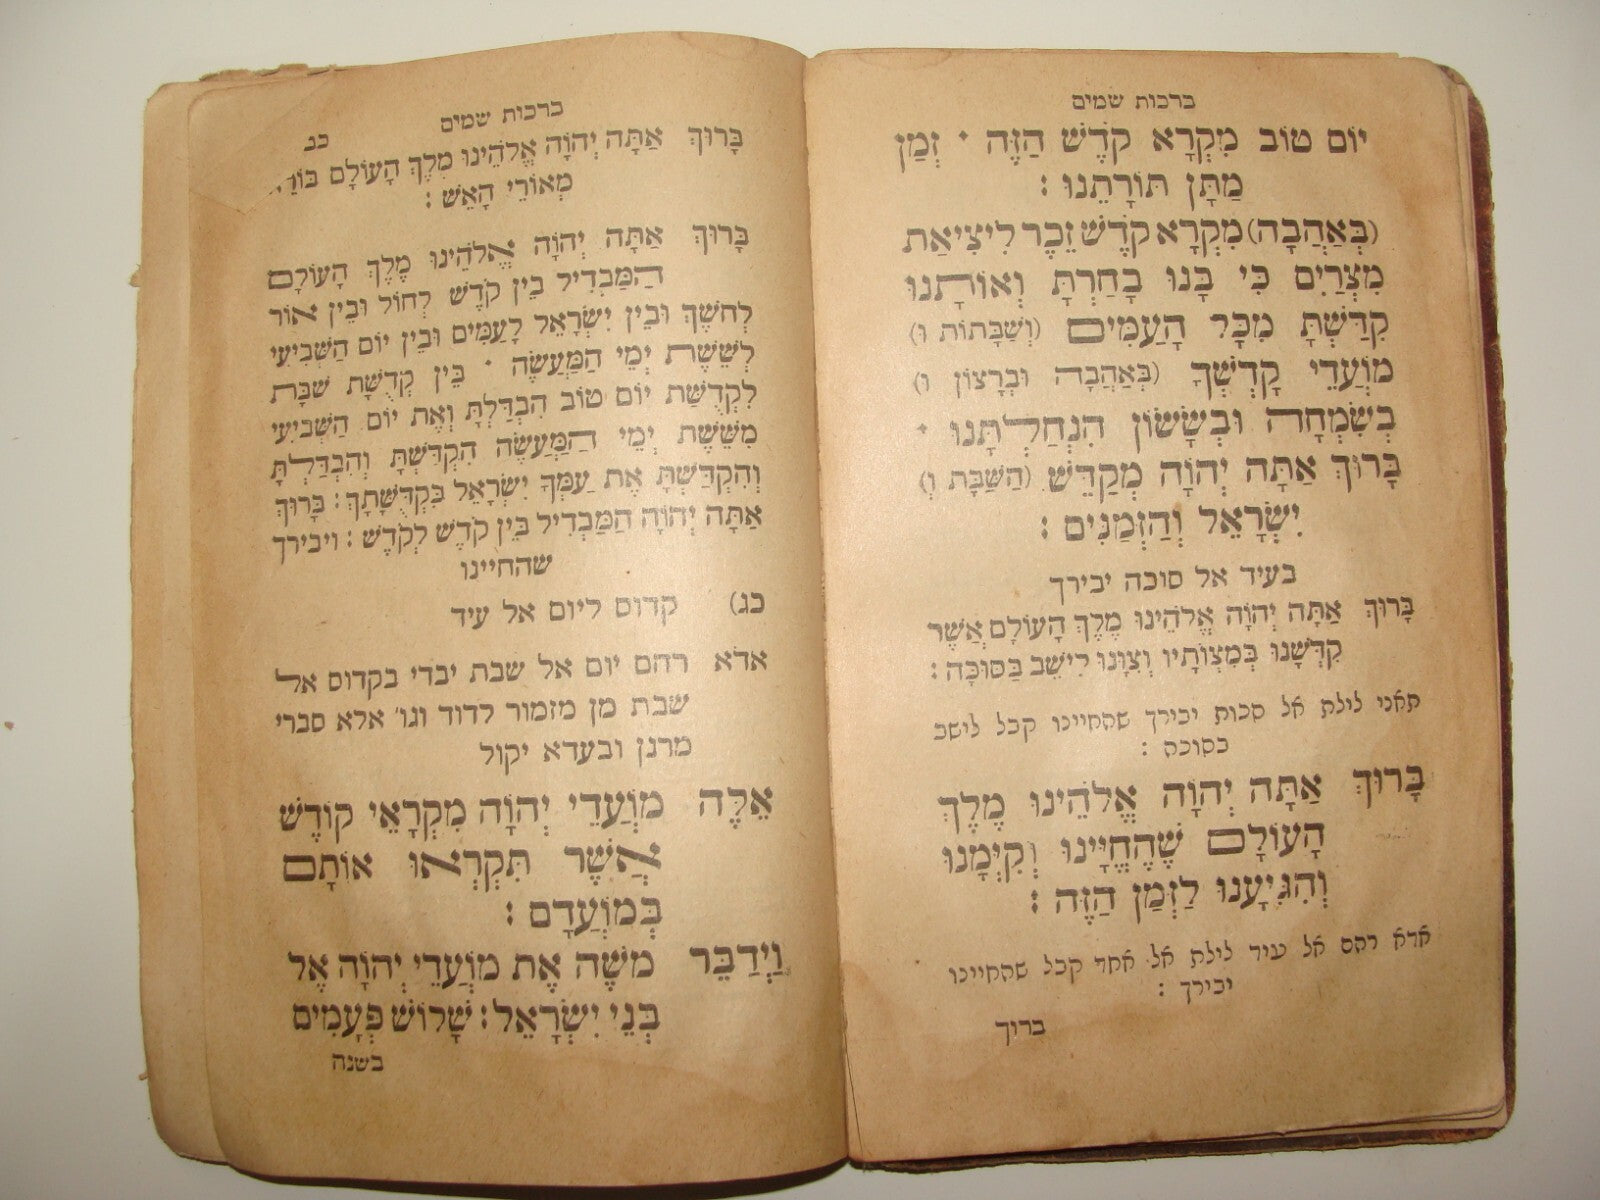 ברכות שמים
יוֹם טוֹב מִקְרָא קֹדֶשׁ הַזֶּה · זְמַן
מַתָּן תּוֹרָתֵנוּ :
(בְּאַהֲבָה) מִקְרָא קֹדֶשׁ זֵכֶר לִיצִיאַת
מִצְרַיִם כִּי בָנוּ בָחַרְתָּ וְאוֹתָנוּ
קִדַּשְׁתָּ מִכָּל הָעַמִּים (וְשַׁבָּתוֹת וּ)
מוֹעֲדֵי קָדְשְׁךָ (בְּאַהֲבָה וּבְרָצוֹן וּ)
בְשִׂמְחָה וּבְשָׂשׂוֹן הִנְחַלְתָּנוּ ·
בָּרוּךְ אַתָּה יְהֹוָה מְקַדֵּשׁ (הַשַּׁבָּת וְ)
יִשְׂרָאֵל וְהַזְּמַנִּים :
בעיד אל סוכה יבירך
בָּרוּךְ אַתָּה יְהֹוָה אֱלֹהֵינוּ מֶלֶךְ הָעוֹלָם אֲשֶׁר
קִדְּשָׁנוּ בְּמִצְוֹתָיו וְצִוָּנוּ לֵישֵׁב בַּסּוּכָּה :
תאני לילת אל סכות יבירך שהחיינו קבל לישב
בסוכה :
בָּרוּךְ אַתָּה יְהֹוָה אֱלֹהֵינוּ מֶלֶךְ
הָעוֹלָם שֶׁהֶחֱיָינוּ וְקִיְּמָנוּ
וְהִגִּיעָנוּ לַזְּמַן הַזֶּה :
אדא רהם אל עיד לילת אל אחד קבל שהחיינו
יבירך :
ברוך
ברכות שמים
כג
בָּרוּךְ אַתָּה יְהֹוָה אֱלֹהֵינוּ מֶלֶךְ הָעוֹלָם
מְאוֹרֵי הָאֵשׁ :
בָּרוּךְ אַתָּה יְהֹוָה אֱלֹהֵינוּ מֶלֶךְ הָעוֹלָם
הַמַּבְדִּיל בֵּין קֹדֶשׁ לְחוֹל וּבֵין אוֹר
לְחֹשֶׁךְ וּבֵין יִשְׂרָאֵל לָעַמִּים וּבֵין יוֹם הַשְּׁבִיעִי
לְשֵׁשֶׁת יְמֵי הַמַּעֲשֶׂה · בֵּין קְדֻשַּׁת שַׁבָּת
לִקְדֻשַּׁת יוֹם טוֹב הִבְדַּלְתָּ וְאֶת יוֹם הַשְּׁבִיעִי
מִשֵּׁשֶׁת יְמֵי הַמַּעֲשֶׂה הִקְדַּשְׁתָּ וְהִבְדַּלְתָּ
וְהִקְדַּשְׁתָּ אֶת עַמְּךָ יִשְׂרָאֵל בִּקְדֻשָּׁתָךְ : בָּרוּךְ
אַתָּה יְהֹוָה הַמַּבְדִּיל בֵּין קֹדֶשׁ לְקֹדֶשׁ : ויבירך
שהחיינו
כג) קדוס ליום אל עיד
אדא רהם יום אל שבת יבדי בקדוס אל
שבת מן מזמור לדוד וגו' אלא סברי
מרנן ובעדא יקול
אֵלֶּה מוֹעֲדֵי יְהֹוָה מִקְרָאֵי קוֹדֶשׁ
אֲשֶׁר תִּקְרְאוּ אוֹתָם
בְּמוֹעֲדָם :
וַיְדַבֵּר מֹשֶׁה אֶת מוֹעֲדֵי יְהֹוָה אֶל
בְּנֵי יִשְׂרָאֵל : שָׁלוֹשׁ פְּעָמִים
בשנה